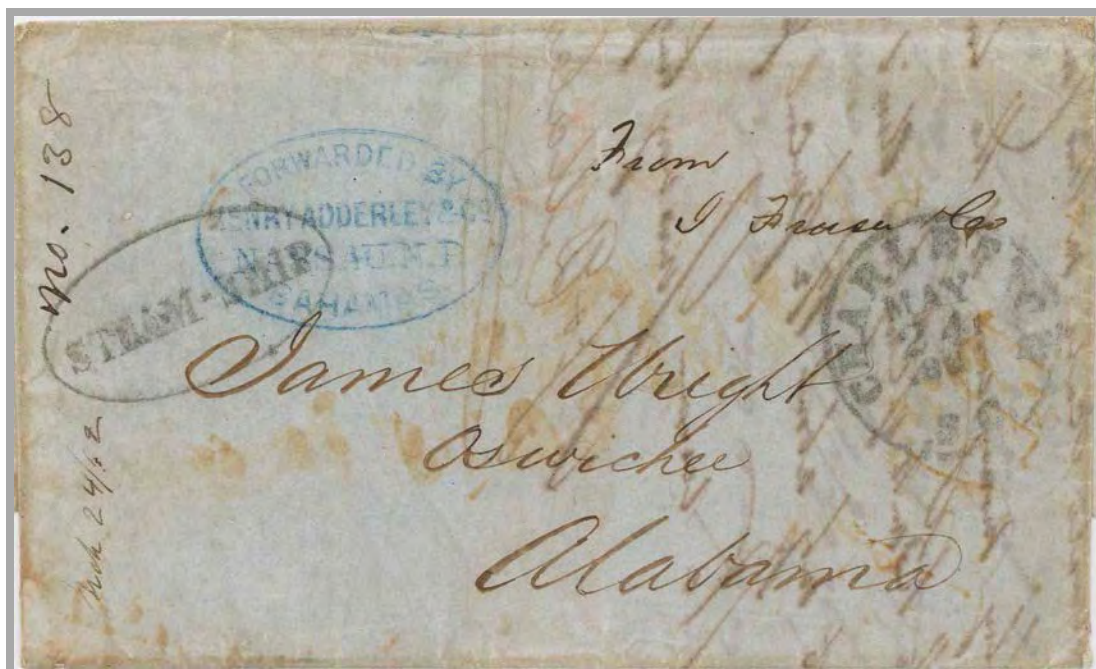 No. 138
FORWARDED BY
HENRY ADDERLEY & CO
NASSAU N.P.
BAHAMAS
STEAM-SHIP
From
J Fraser & Co
CHARLESTON
MAY
24
S.C.
James Wright
Oswichee
Alabama